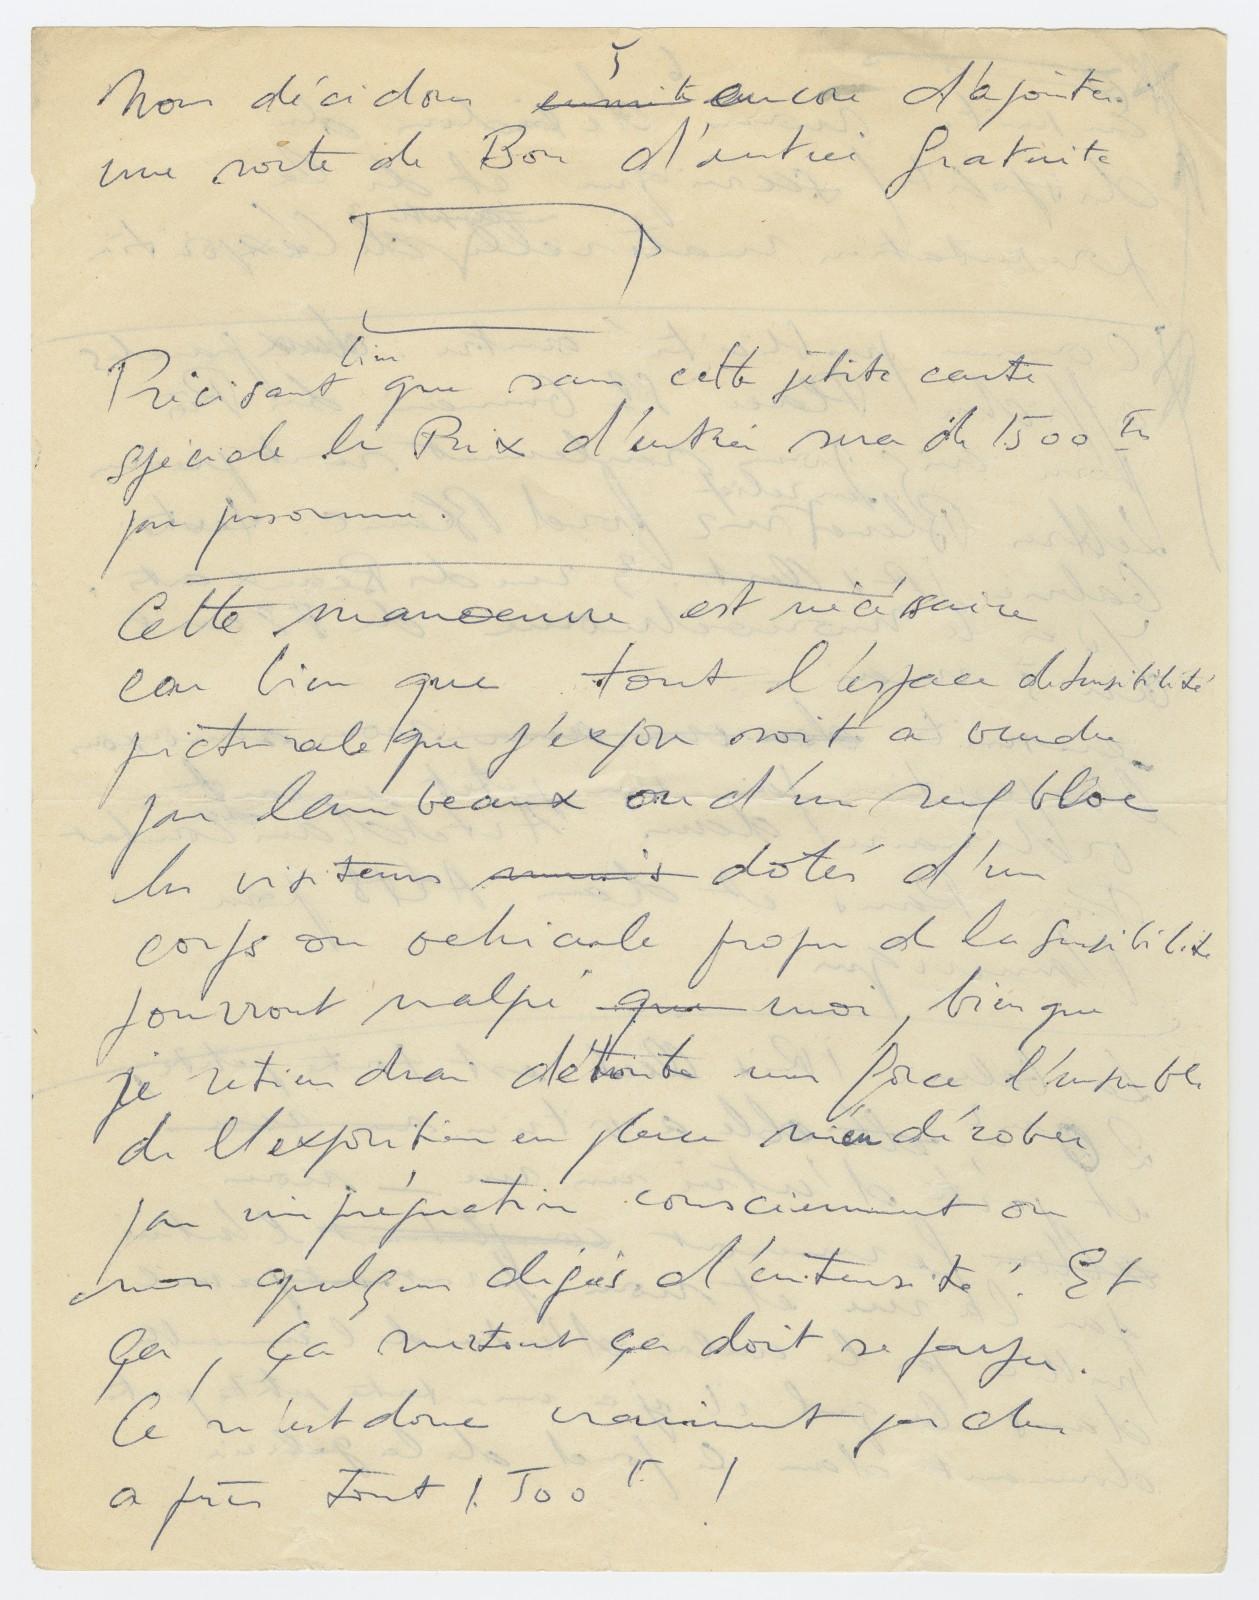 5
Nous décidons ensuite encore d'ajouter
une sorte de Bon d'entrée gratuite
Précisant bien que sans cette petite carte
spéciale le Prix d'entrée sera de 1500 Frs
par personne.
Cette manoeuvre est nécéssaire
car bien que tout l'espace de sensibilité
picturale que j'expose soit a vendre
par lambeaux ou d'un seul bloc
les visiteurs munis dotés d'un
corps ou vehicule propre de la sensibilité
pourront malgré que moi, bien que
je retiendrai de toute ma force l'ensemble
de l'exposition en place m'en dérober
par imprégnation consciemment ou
non quelques degrés d'intensité. Et
ça, ça surtout ça doit se payer.
Ce n'est donc vraiment pas cher
après tout 1.500 Fr !